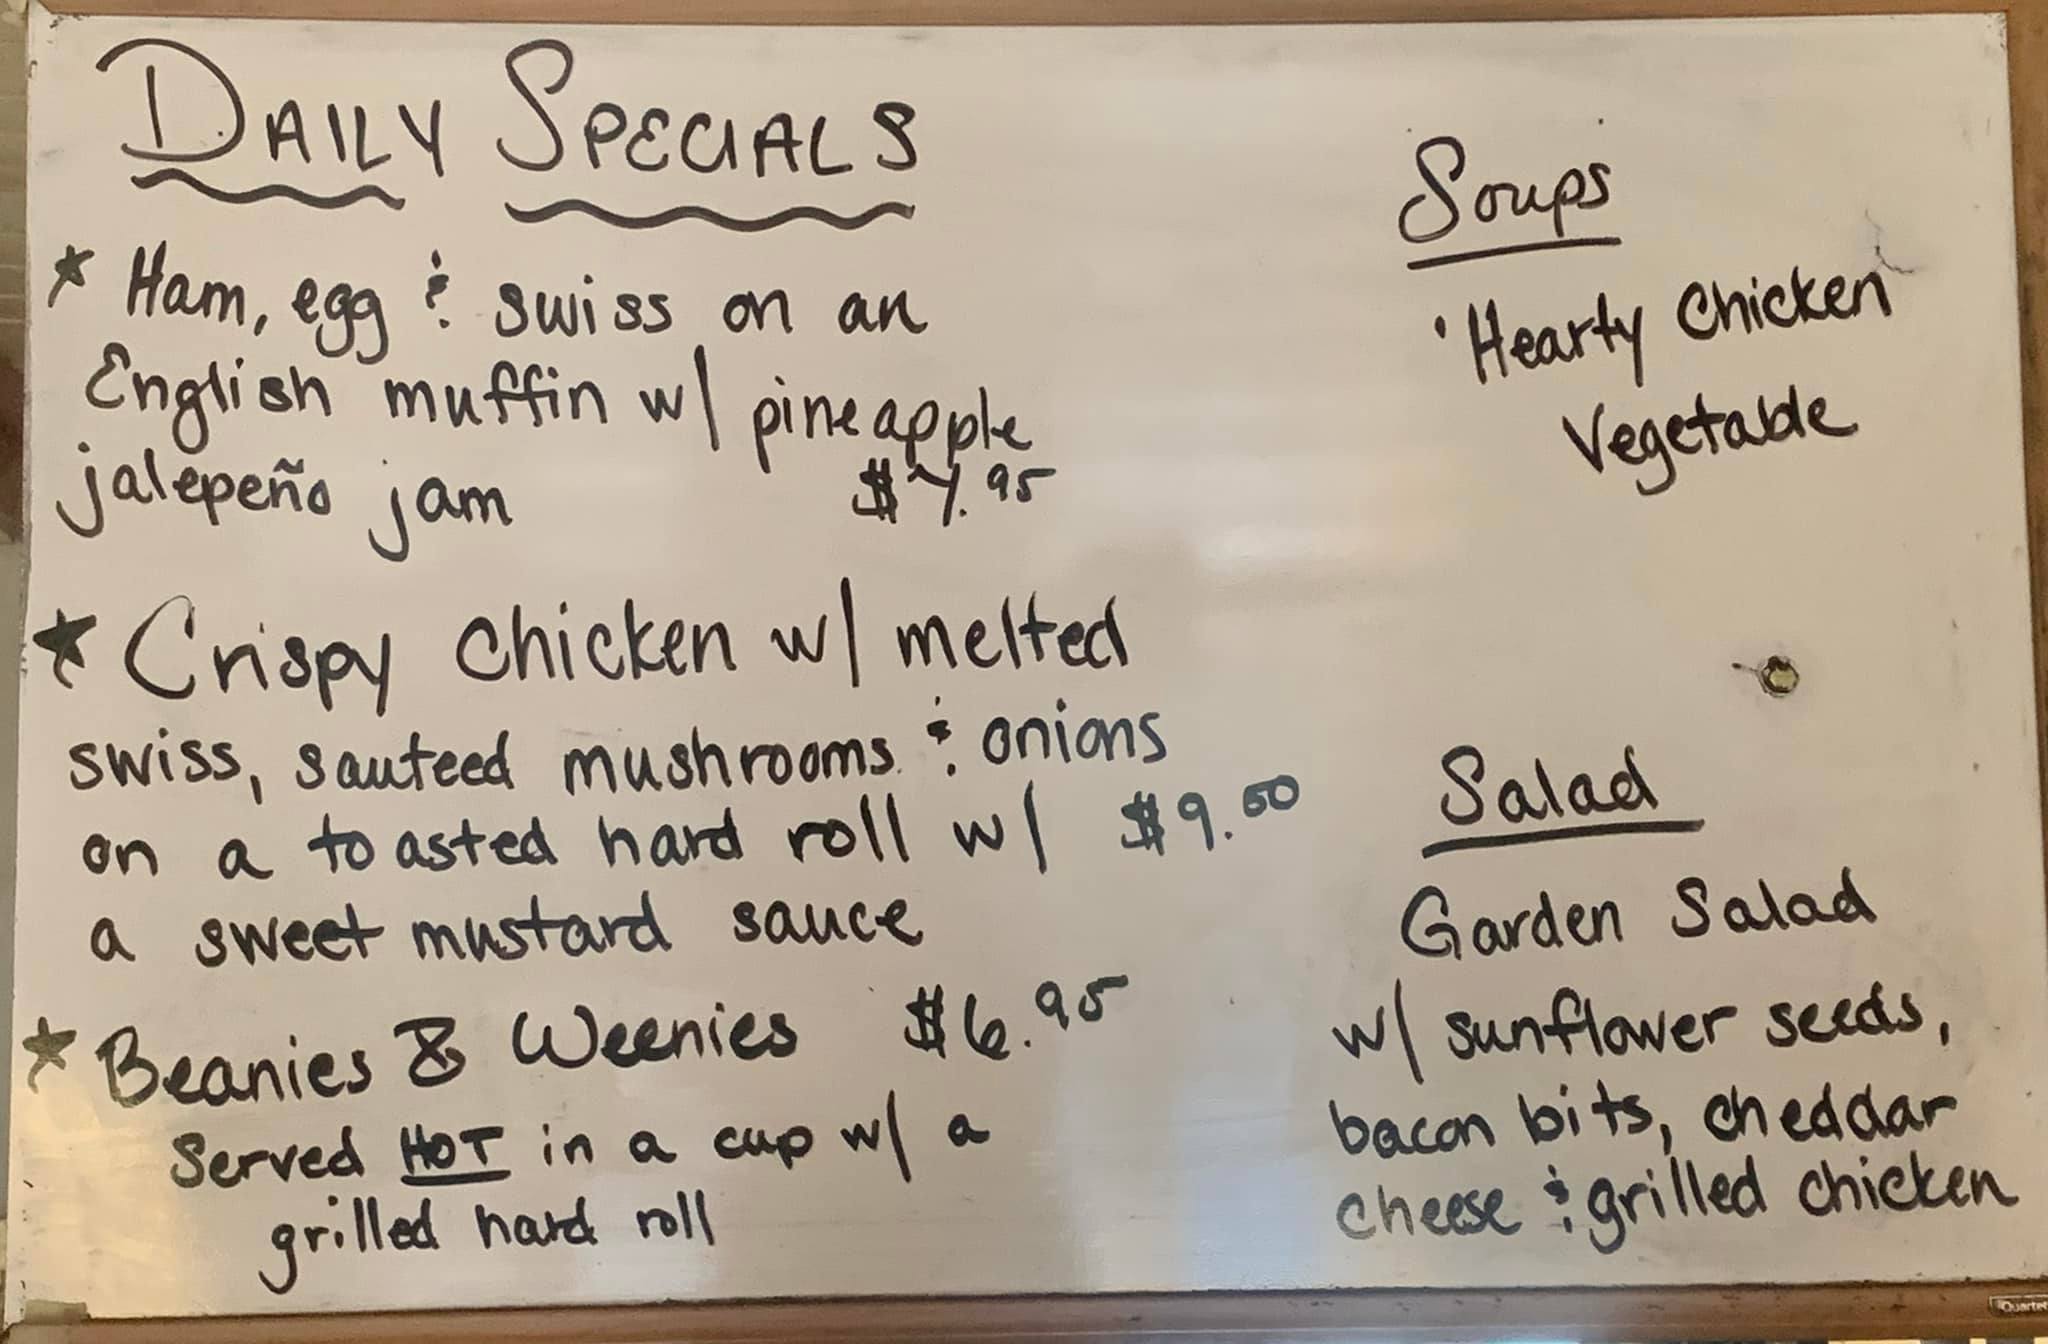 DAILY SPECIALS
* Ham, egg & swiss on an
English muffin w/ pineapple
jalepeño jam $7.95
* Crispy chicken w/ melted
swiss, sauteed mushrooms & onions
on a toasted hard roll w/ $9.50
a sweet mustard sauce
* Beanies & Weenies $6.95
Served HOT in a cup w/ a
grilled hard roll
Soups
· Hearty Chicken
Vegetable
Salad
Garden Salad
w/ sunflower seeds,
bacon bits, cheddar
cheese & grilled chicken
Quartet